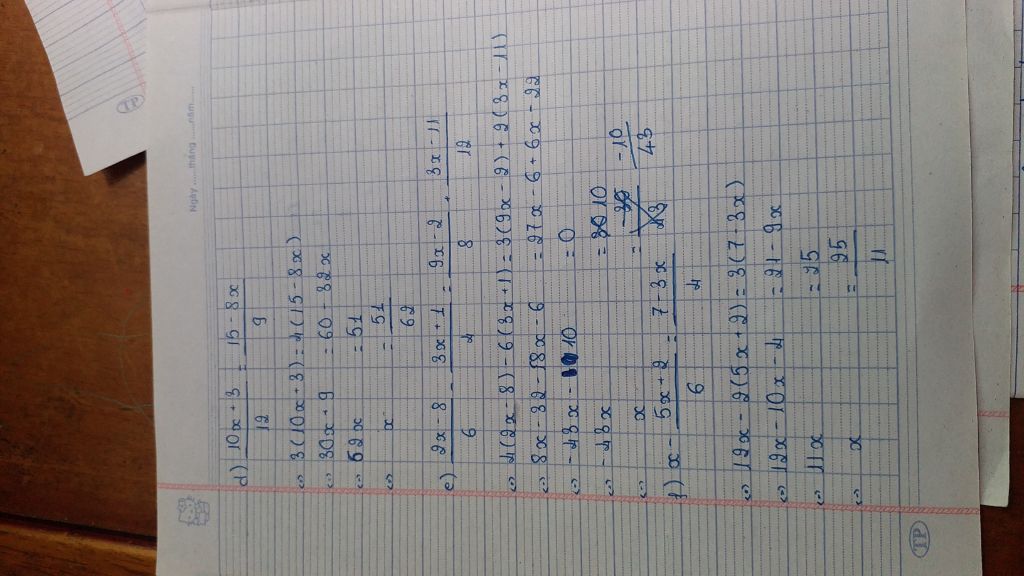 Ngày ......tháng ......năm......
d) (10x + 3)/12 = (15 - 8x)/9
⇔ 3(10x + 3) = 4(15 - 8x)
⇔ 30x + 9 = 60 - 32x
⇔ 62x = 51
⇔ x = 51/62
e) (2x - 8)/6 - (3x + 1)/4 = (9x - 2)/8 + (3x - 11)/12
⇔ 4(2x - 8) - 6(3x + 1) = 3(9x - 2) + 2(3x - 11)
⇔ 8x - 32 - 18x - 6 = 27x - 6 + 6x - 22
⇔ -43x - 10 = 0
⇔ -43x = 10
⇔ x = -10/43
f) x - (5x + 2)/6 = (7 - 3x)/4
⇔ 12x - 2(5x + 2) = 3(7 - 3x)
⇔ 12x - 10x - 4 = 21 - 9x
⇔ 11x = 25
⇔ x = 25/11
TP
TP